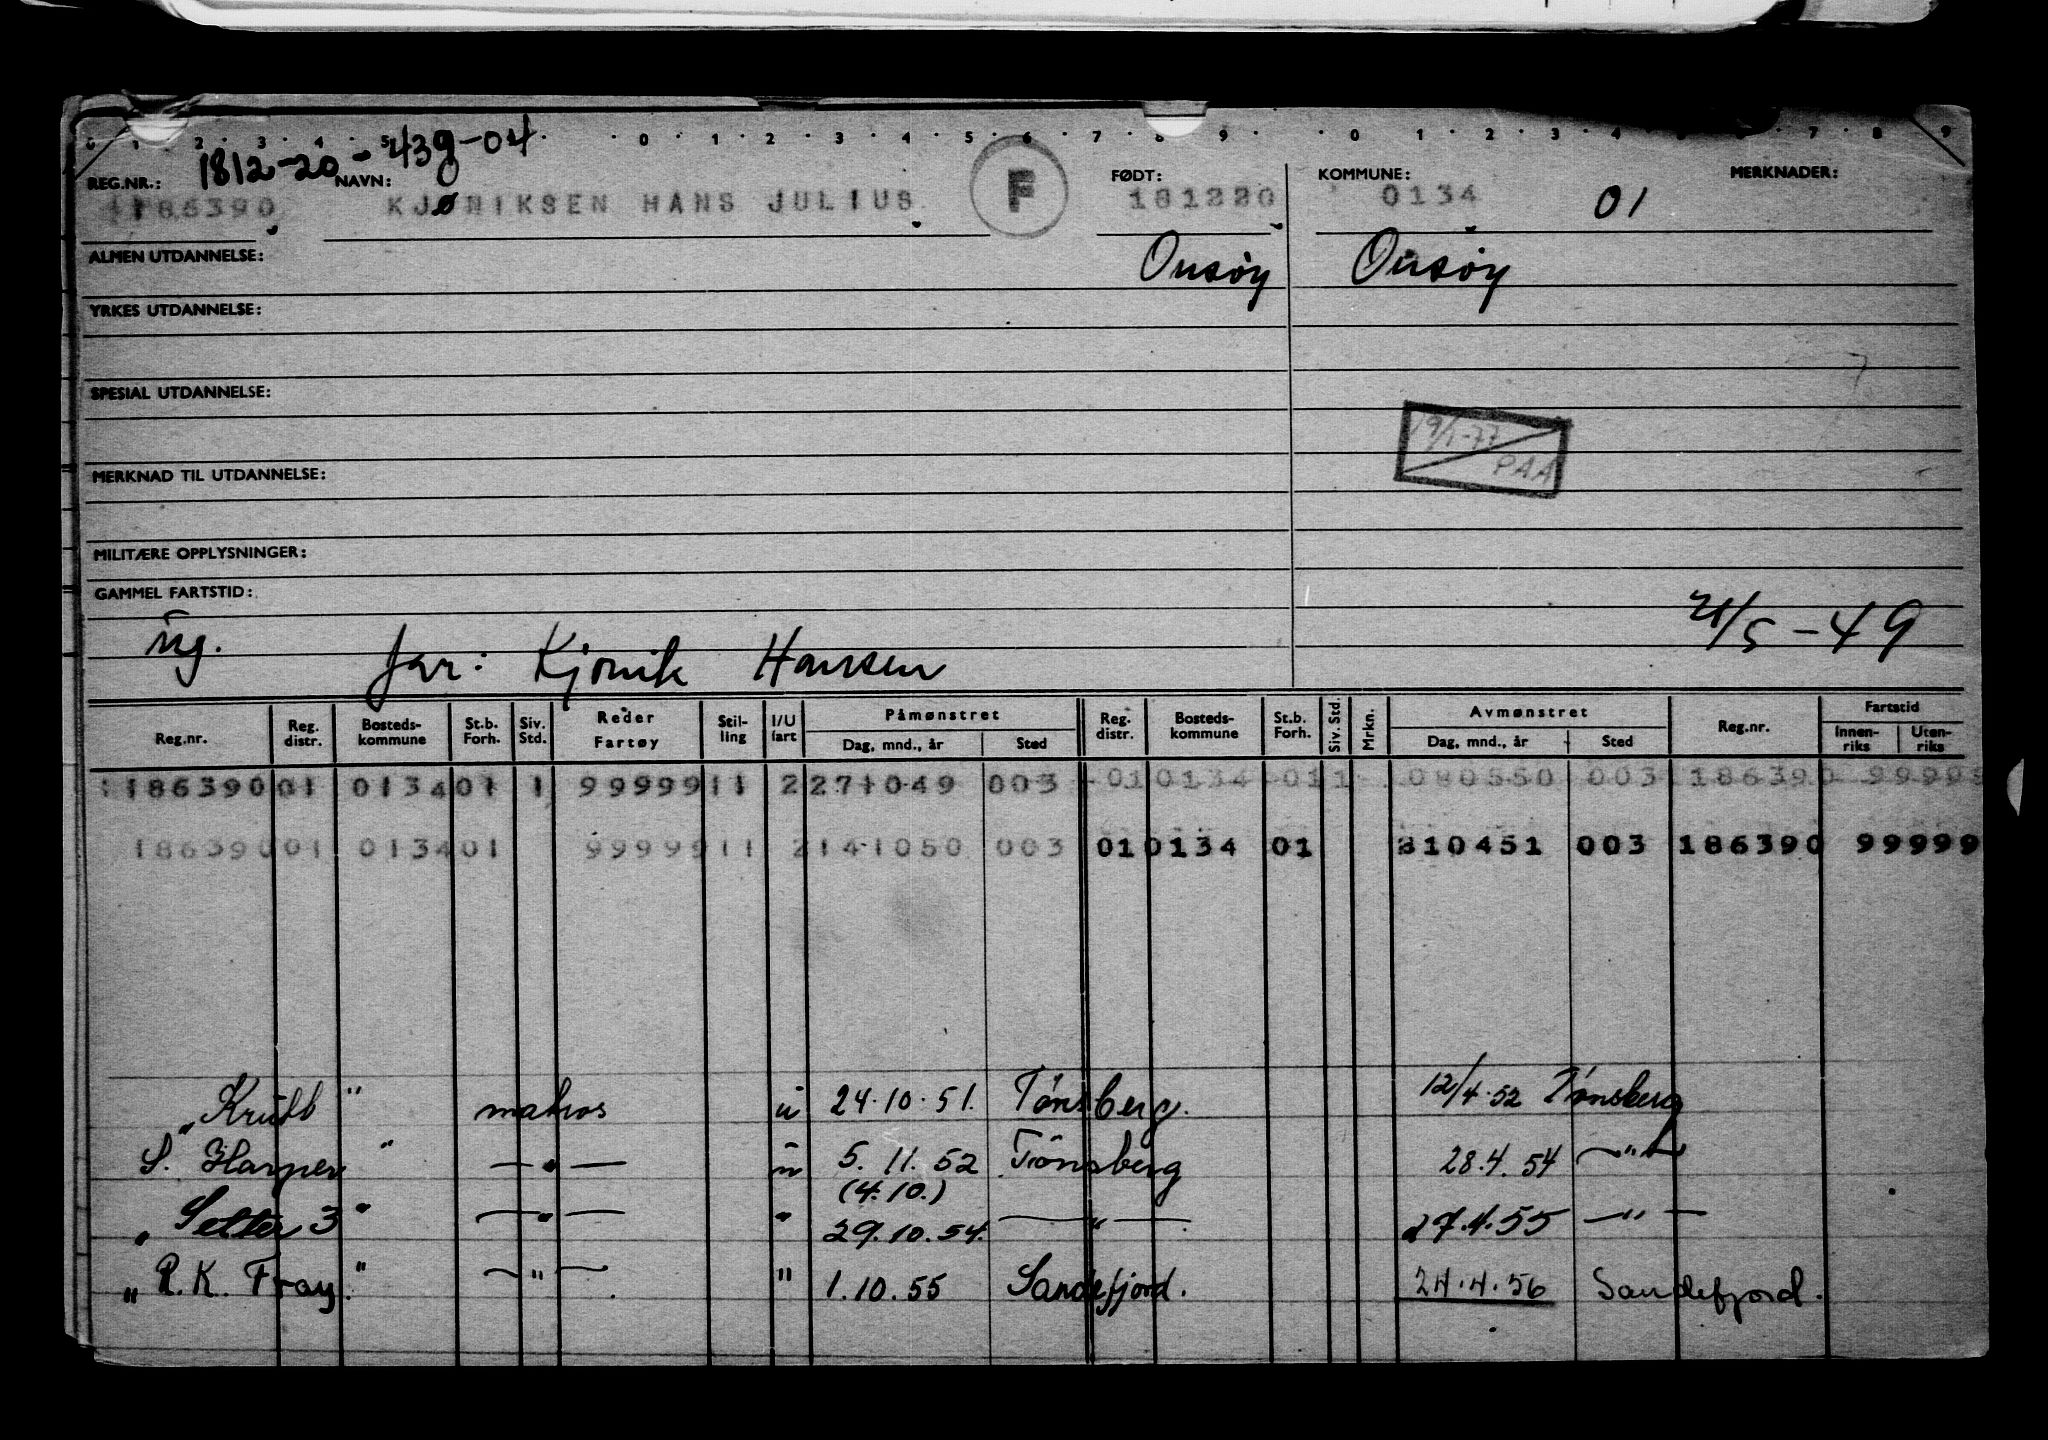 0 1 2 3 4 5 0 1 2 3 4 5 6 7 8 9 0 1 2 3 4 5 6 7 8 9
1812-20-439-04
REG.NR.: NAVN: FØDT: KOMMUNE: MERKNADER:
186390 KJØNIKSEN HANS JULIUS F 181220 0134 01
ALMEN UTDANNELSE: Onsøy Onsøy
YRKES UTDANNELSE:
SPESIAL UTDANNELSE:
19/1-77
PAA
MERKNAD TIL UTDANNELSE:
MILITÆRE OPPLYSNINGER:
GAMMEL FARTSTID:
ug. far: Kjønik Hansen 21/5-49
Reg.nr. Reg. distr. Bosteds-kommune St.b. Forh. Siv. Std. Reder Fartøy Stil-ling I/U fart Påmønstret Dag, mnd., år Sted Reg. distr. Bosteds-kommune St.b. Forh. Siv. Std. Mrkn. Avmønstret Dag, mnd., år Sted Reg.nr. Fartstid Innen-riks Uten-riks
186390 01 0134 01 1 99999 11 2 271049 003 01 0134 01 1 080550 003 186390 99999
186390 01 0134 01 99999 11 2 141050 003 01 0134 01 310451 003 186390 99999
„Krutt" matros u 24.10.51. Tønsberg. 12/4.52 Tønsberg
S. Harpen " —"— u 5.11.52 Tønsberg 28.4.54 —"—
(4.10.)
„Setter 3" —"— " 29.10.54. —"— 27.4.55 —"—
„P.K. Fray." —"— " 1.10.55 Sandefjord. 24.4.56 Sandefjord.